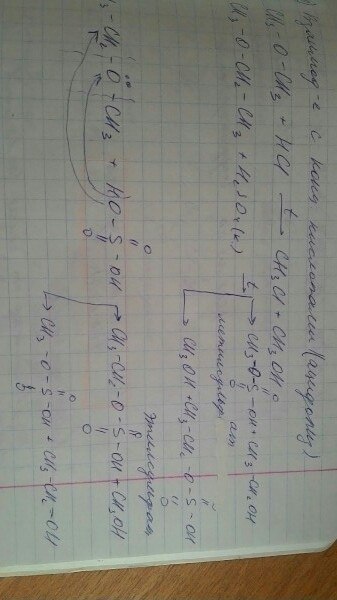 Взаимод-е с конц кислотами (ацидолиз)
CH3-O-CH3 + HCl →t CH3Cl + CH3OH
CH3-O-CH2-CH3 + H2SO4(к) →t CH3-O-S-OH + CH3-CH2OH
O
метилсульфат
CH3OH + CH3-CH2-O-S-OH
O
O
этилсульфат
CH3-CH2-O-CH3 + HO-S-OH → CH3-CH2-O-S-OH + CH3OH
O
O
O
O
CH3-O-S-OH + CH3-CH2-OH
O
O